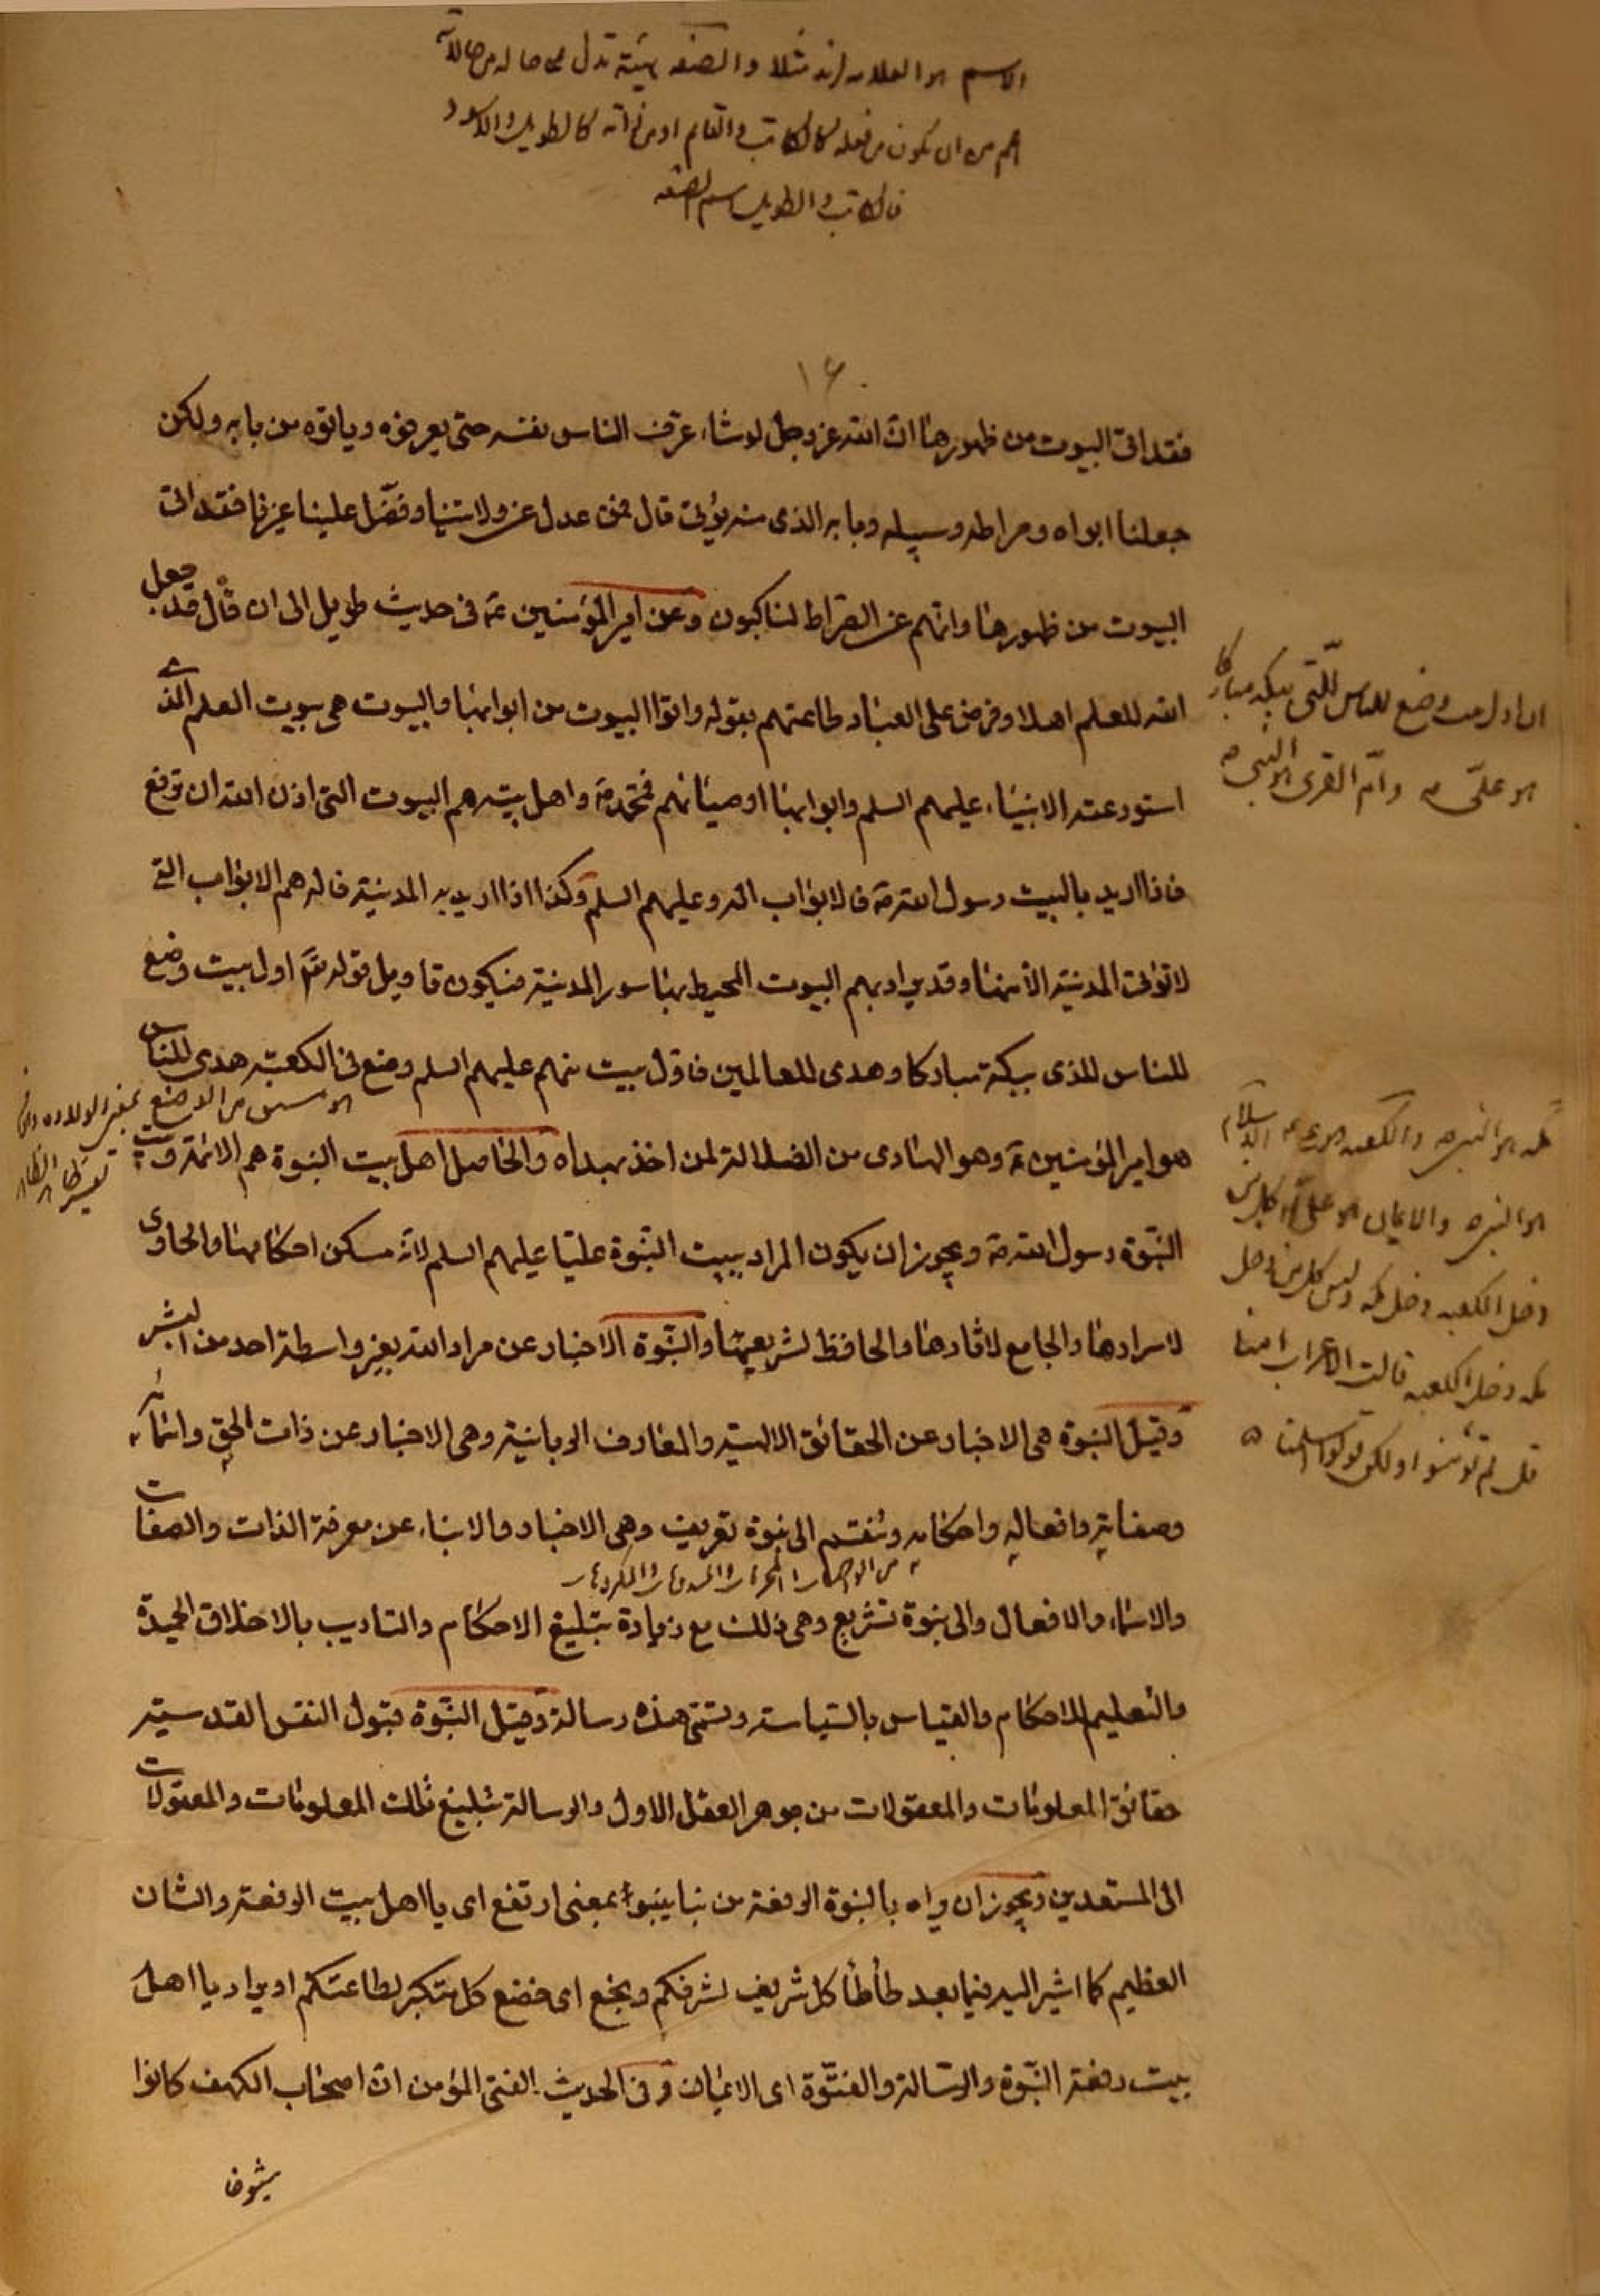 الاسم هو العلامه لزيد مثلا والصفه هيئة تدل على حاله من حالاته
اعم من ان يكون من فعله كالكاتب والقايم او من ذاته كالطويل والاسود
فالكاتب والطويل اسم الصفه
١٦
فقد اتى البيوت من ظهورها ان الله عز وجل لو شاء عرف الناس نفسه حتى يعرفوه وياتوه من بابه ولكن
جعلنا ابوابه وصراطه وسبيله وبابه الذى منه يؤتى قال فمن عدل عن ولايتنا وفضّل علينا غيرنا فقد اتى
البيوت من ظهورها وانهم عن الصراط لناكبون وعن امير المؤمنين ع فى حديث طويل الى ان قال قد جعل
الله للعلم اهلا وفرض على العباد طاعتهم بقوله واتوا البيوت من ابوابها والبيوت هى بيوت العلم الذى
استودعته الانبياء عليهم السلم وابوابها اوصيائهم فمحمد ص واهل بيته هم البيوت التى اذن الله ان ترفع
فاذا اريد بالبيت رسول الله ص فالابواب اله وعليهم السلم وكذا اذا اريد به المدينة فاله هم الابواب التى
لا تؤتى المدينة الا منها وقد يراد بهم البيوت المحيط بها سور المدينة فيكون تاويل قوله تع اول بيت وضع
للناس للذى ببكة مباركا وهدى للعالمين فاول بيت منهم عليهم السلم وضع فى الكعبة هدى للناس
هو امير المؤمنين ع وهو الهادى من الضلالة لمن اخذ بهداه والحاصل اهل بيت النبوة هم الائمة وبيت
النبّوة رسول الله ص ويجوز ان يكون المراد ببيت النبّوة عليّا عليهم السلم لانّه مسكن احكامها والحاوى
لاسرارها والجامع لاثارها والحافظ لشريعتها والنبّوة الاخبار عن مراد الله بغير واسطة احد من البشر
وقيل النبوة هى الاخبار عن الحقائق الالهية والمعارف الربانية وهى الاخبار عن ذات الحق واسمائه
وصفاته وافعاله واحكامه وتنقسم الى نبوة تعريف وهى الاخبار والانباء عن معرفة الذات والصفات
والاسماء والافعال والى نبوة تشريع وهى ذلك مع زيادة تبليغ الاحكام والتاديب بالاخلاق الحميدة
والتعليم للاحكام والقياس بالسّياسة وتسمّى هذه رسالة وقيل النبّوة قبول النفس القدسية
حقائق المعلومات والمعقولات من جوهر العقل الاول والرسالة تبليغ تلك المعلومات والمعقولات
الى المستعدين ويجوز ان يراد بالنبوة الرفعة من نبا ينبوا بمعنى ارتفع اى يا اهل بيت الرفعة والشان
العظيم كما اشير اليه فيما بعد طأطأ كل شريف لشرفكم وبخع اى خضع كل متكبر لطاعتكم او يراد يا اهل
بيت رفعة النبّوة والرسالة والفتوّة اى الايمان وفى الحديث الفتى المؤمن ان اصحاب الكهف كانوا
شيوخا
ان اول بيت وضع للناس للّتى ببكه مباركا
هو علىّ ع وامّ القرى هو النبى ص
مكه هو النبى ص والكعبه هو على ع الاسلام
هو النبى ص والايمان هو علىّ وكل من
دخل الكعبه دخل مكه وليس كل من دخل
مكه دخل الكعبه قالت الاعراب امنا
قل لم تؤمنوا ولكن قولوا اسلمنا